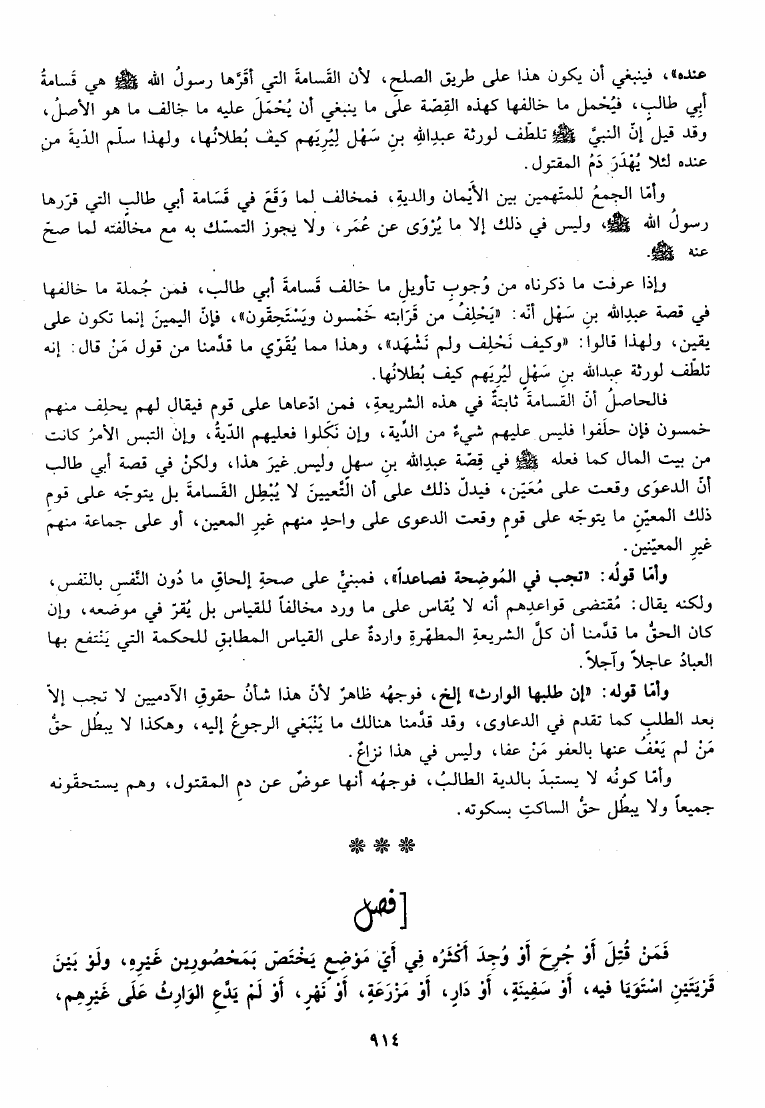 عنده»، فينبغي أن يكون هذا على طريق الصلحِ، لأن القَسامةَ التي أقرَّها رسولُ الله ﷺ هي قَسامةُ
أبي طالبٍ، فيُحْمل ما خالفها كهذه القِصّة على ما ينبغي أن يُحْمَلَ عليه ما خالف ما هو الأصلُ،
وقد قيل إنّ النبيَّ ﷺ تلطّف لورثة عبدِاللهِ بنِ سَهْل لِيُرِيَهم كيفَ بُطلانُها، ولهذا سلّم الدّيةَ من
عنده لئلا يُهْدَرَ دَمُ المقتول.
وأمّا الجمعُ للمتّهمين بين الأيْمان والديةِ، فمخالف لما وَقَعَ في قَسَامة أبي طالبٍ التي قرّرها
رسولُ الله ﷺ، وليس في ذلك إلا ما يُرْوَى عن عُمَر، ولا يجوز التمسّك به مع مخالفته لما صحّ
عنه ﷺ.
وإذا عرفت ما ذكرناه من وُجوبِ تأويلِ ما خالف قَسامةَ أبي طالب، فمن جُملة ما خالفها
في قصة عبدِالله بنِ سَهْل أنّه: «يَحْلِفُ من قَرَابته خَمْسون ويَسْتَحِقّون»، فإنّ اليمينَ إنما تكون على
يقين، ولهذا قالوا: «وكيف نَحْلِف ولم نَشْهَد»، وهذا مما يُقَوّي ما قدَّمنا من قول مَنْ قال: إنه
تلطّف لورثة عبدالله بنِ سَهْلٍ ليُرِيَهم كيف بُطلانُها.
فالحاصلُ أنّ القسامةَ ثابتةٌ في هذه الشريعةِ، فمن ادّعاها على قومٍ فيقال لهم يحلِف منهم
خمسون فإن حلَفوا فليس عليهم شيءٌ من الدِّية، وإن نَكَلوا فعليهم الدّيةُ، وإن التبس الأمرُ كانت
من بيت المال كما فعله ﷺ في قِصّة عبدِالله بنِ سهلٍ وليس غيرَ هذا، ولكنْ في قصة أبي طالب
أنّ الدعوَى وقعت على مُعَيّن، فيدلّ ذلك على أن التَّعيينَ لا يُبْطِل القَسامةَ بل يتوجّه على قومِ
ذلك المعيّنِ ما يتوجّه على قومٍ وقعت الدعوى على واحدٍ منهم غيرِ المعين، أو على جماعة منهم
غيرِ المعيّنين.
وأمّا قولُه: «تجب في المُوضِحة فصاعداً»، فمبنيٌّ على صحةِ إلحاقِ ما دُون النَّفسِ بالنّفس،
ولكنه يقال: مُقتضى قواعدِهم أنه لا يُقاس على ما ورد مخالفاً للقياس بل يُقرّ في موضعه، وإن
كان الحقُّ ما قدَّمنا أن كلَّ الشريعةِ المطهّرةِ واردةٌ على القياس المطابقِ للحكمة التي يَنْتفع بها
العبادُ عاجلاً وآجلاً.
وأمّا قوله: «إن طلبها الوارث» إلخ، فوجهُه ظاهرٌ لأنّ هذا شأنُ حقوقِ الآدميين لا تجب إلاّ
بعد الطلبِ كما تقدم في الدعاوى، وقد قدَّمنا هنالك ما يَنْبَغي الرجوعُ إليه، وهكذا لا يبطُل حقُّ
مَنْ لم يَعْفُ عنها بالعفو مَنْ عفا، وليس في هذا نزاعٌ.
وأمّا كونُه لا يستبدّ بالدية الطالبُ، فوجهُه أنها عوضٌ عن دمِ المقتول، وهم يستحقّونه
جميعاً ولا يبطُل حقُّ الساكتِ بسكوته.
❊ ❊ ❊
[فصل
فَمَنْ قُتِلَ أَوْ جُرِحَ أَوْ وُجِدَ أَكْثَرُه فِي أَيّ مَوْضِعٍ يَخْتَصّ بِمَحْصُورِين غَيْرِهِ، ولَوْ بَيْنَ
قَرْيَتَيْنِ اسْتَوَيَا فيه، أَوْ سَفِينَةٍ، أَوْ دَارٍ، أَوْ مَزْرَعَةٍ، أَوْ نَهْرٍ، أَوْ لَمْ يَدَّعِ الوَارِثُ عَلَى غَيْرِهِم،
٩١٤